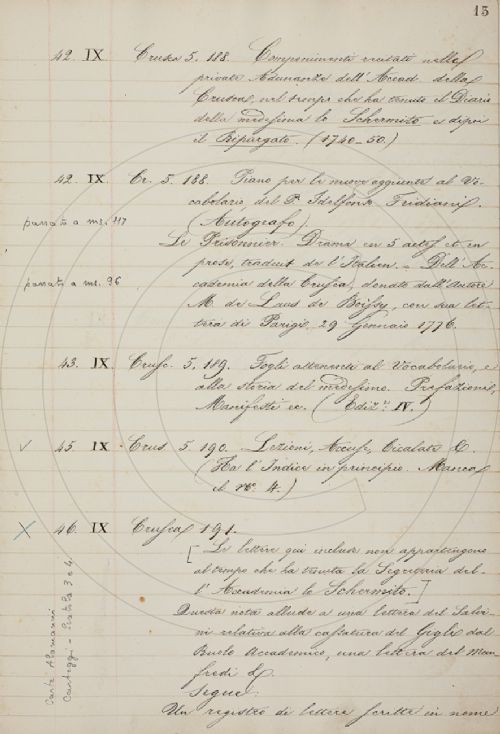 15
42. IX Crusca 5. 188. Componimenti recitati nelle
private Adunanze dell'Accad. della
Crusca, nel tempo che ha tenuto il Diario
della medesima lo Schermito e dipoi
il Ripurgato. (1740-50.)
42. IX. Cr. 5. 188. Piano per le nuove aggiunte al Vo-
cabolario, del P. Idelfonso Fridiani.
passato a ms. 117
(Autografo).
Le Prisonnier. Drama en 5 actes et en
prose, traduit de l'Italien. - Dell'Ac-
passato a ms. 96
cademia della Crusca, donato dall'Autore
M. de Laus de Boissy, con sua let-
tera di Parigi, 29 Gennaio 1776.
43. IX. Crusc. 5. 189. Fogli attenenti al Vocabolario, e
alla storia del medesimo. Prefazioni,
Manifesti ec. (Ediz.e IV.)
45. IX Crus 5. 190. Lezioni, Accuse, Cicalate &.
(Ha l'Indice in principio. Manca
il no. 4.)
46. IX Crusca 191.
[Le lettere qui incluse non appartengono
al tempo che ha tenuta la Segreteria del-
l'Accademia lo Schermito.]
Questa nota allude a una lettera del Salvi-
ni relativa alla cassatura del Gigli dal
Ruolo Accademico, una lettera del Man-
fredi &
Segue:
Un registro di lettere scritte in nome
Carte Alamanni
Carteggi -
3 e 4.